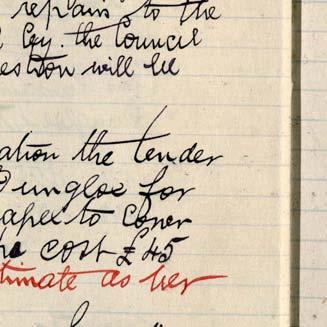 repairs to the
Coy. the Council
estion will be
ation the tender
Dungloe for
apex to Coner
cost £45
timate as her